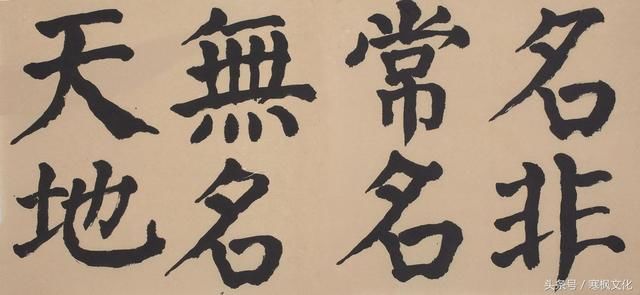 名非
常名
無名
天地
头条号／寒枫文化